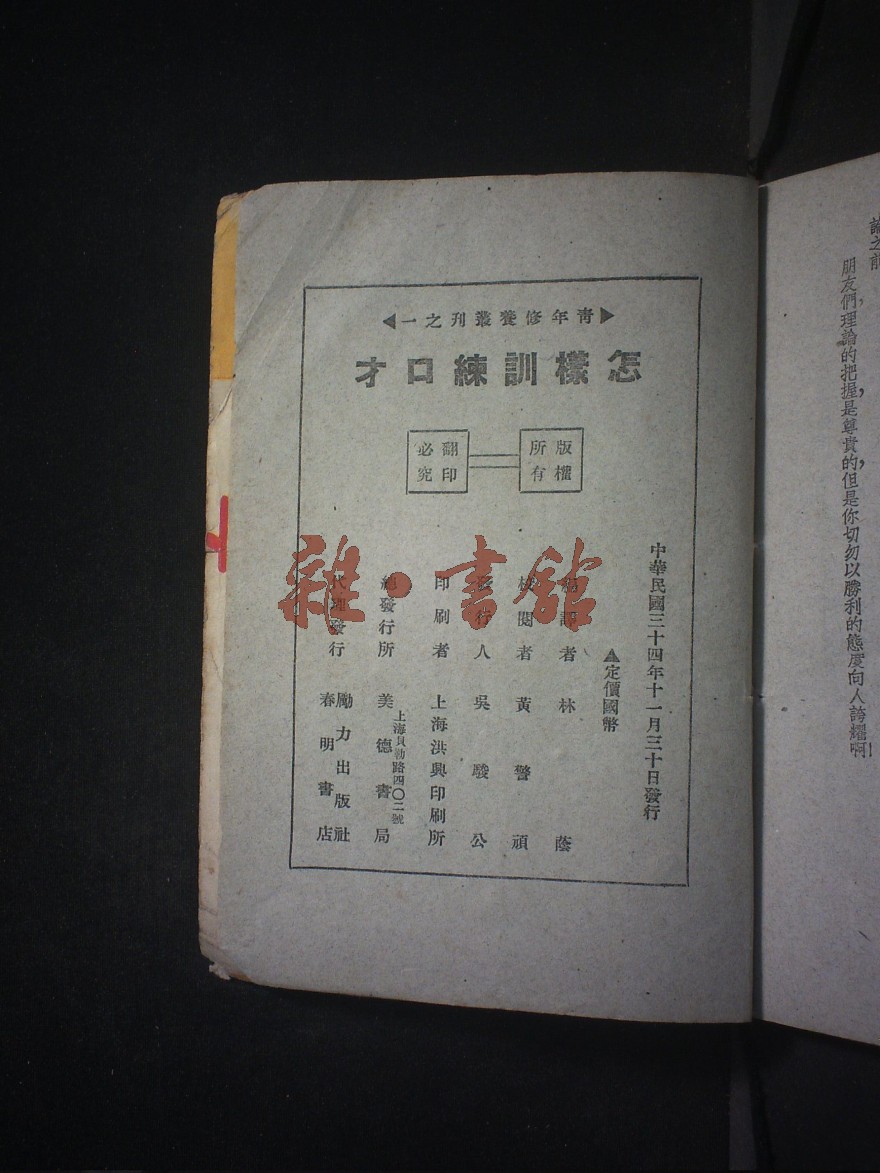 諸之前，
朋友們，理論的把握，是尊貴的，但是你切勿以勝利的態度向人誇耀啊！
青年修養叢刊之一
怎樣訓練口才
版權所有
翻印必究
中華民國三十四年十一月三十日發行
▲定價國幣
編譯者 林蔭
校閱者 黃警頑
發行人 吳駿公
印刷者 上海洪興印刷所
總發行所 美德書局
上海貝勒路四〇二號
代理發行 勵力出版社
春明書店
雜·書館